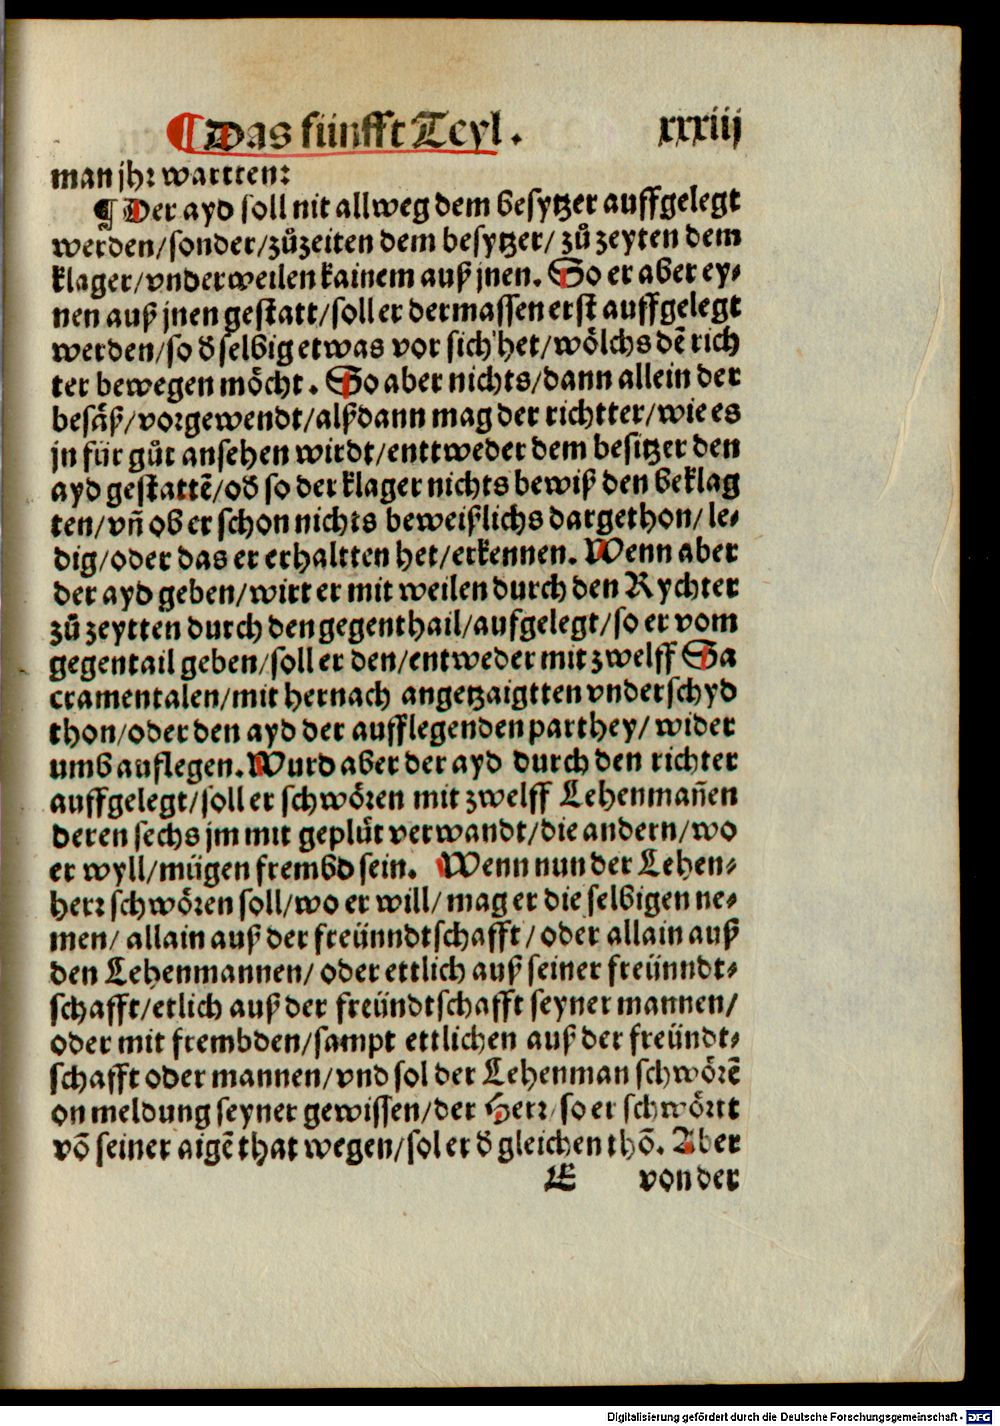 ¶ Das fünfft Teyl. xxxiij
man jhr wartten:
¶ Der ayd soll nit allweg dem besytzer auffgelegt
werden/sonder/zů zeiten dem besytzer/ zů zeyten dem
klager/vnderweilen kainem auß jnen. So er aber ey-
nen auß jnen gestatt/soll er dermassen erst auffgelegt
werden/so d̄ selbig etwas vor sich het/wölchs dē rich
ter bewegen möcht. So aber nichts/dann allein der
besäß/vorgewendt/alßdann mag der richtter/wie es
jn für gůt ansehen wirdt/enttweder dem besitzer den
ayd gestattē/od̄ so der klager nichts bewiß den beklag
ten/vñ ob er schon nichts beweißlichs dargethon/ le-
dig/oder das er erhaltten het/erkennen. Wenn aber
der ayd geben/wirt er mit weilen durch den Rychter
zů zeytten durch den gegenthail/aufgelegt/so er vom
gegentail geben/soll er den/entweder mit zwelff Sa
cramentalen/mit hernach angetzaigtten vnderschyd
thon/oder den ayd der aufflegenden parthey/ wider
umb auflegen. Wurd aber der ayd durch den richter
auffgelegt/soll er schwören mit zwelff Lehenmañen
deren sechs jm mit geplüt verwandt/die andern/wo
er wyll/mügen frembd sein. Wenn nun der Lehen-
herr schwören soll/wo er will/ mag er die selbigen ne-
men/ allain auß der freünndtschafft/ oder allain auß
den Lehenmannen/ oder ettlich auß seiner freünndt-
schafft/etlich auß der freündtschafft seyner mannen/
oder mit frembden/sampt ettlichen auß der freündt-
schafft oder mannen/vnd sol der Lehenman schwörē
on meldung seyner gewissen/der Herr/so er schwörtt
vō seiner aigē that wegen/sol er d̄ gleichen thō. Aber
E von der
Digitalisierung gefördert durch die Deutsche Forschungsgemeinschaft - DFG